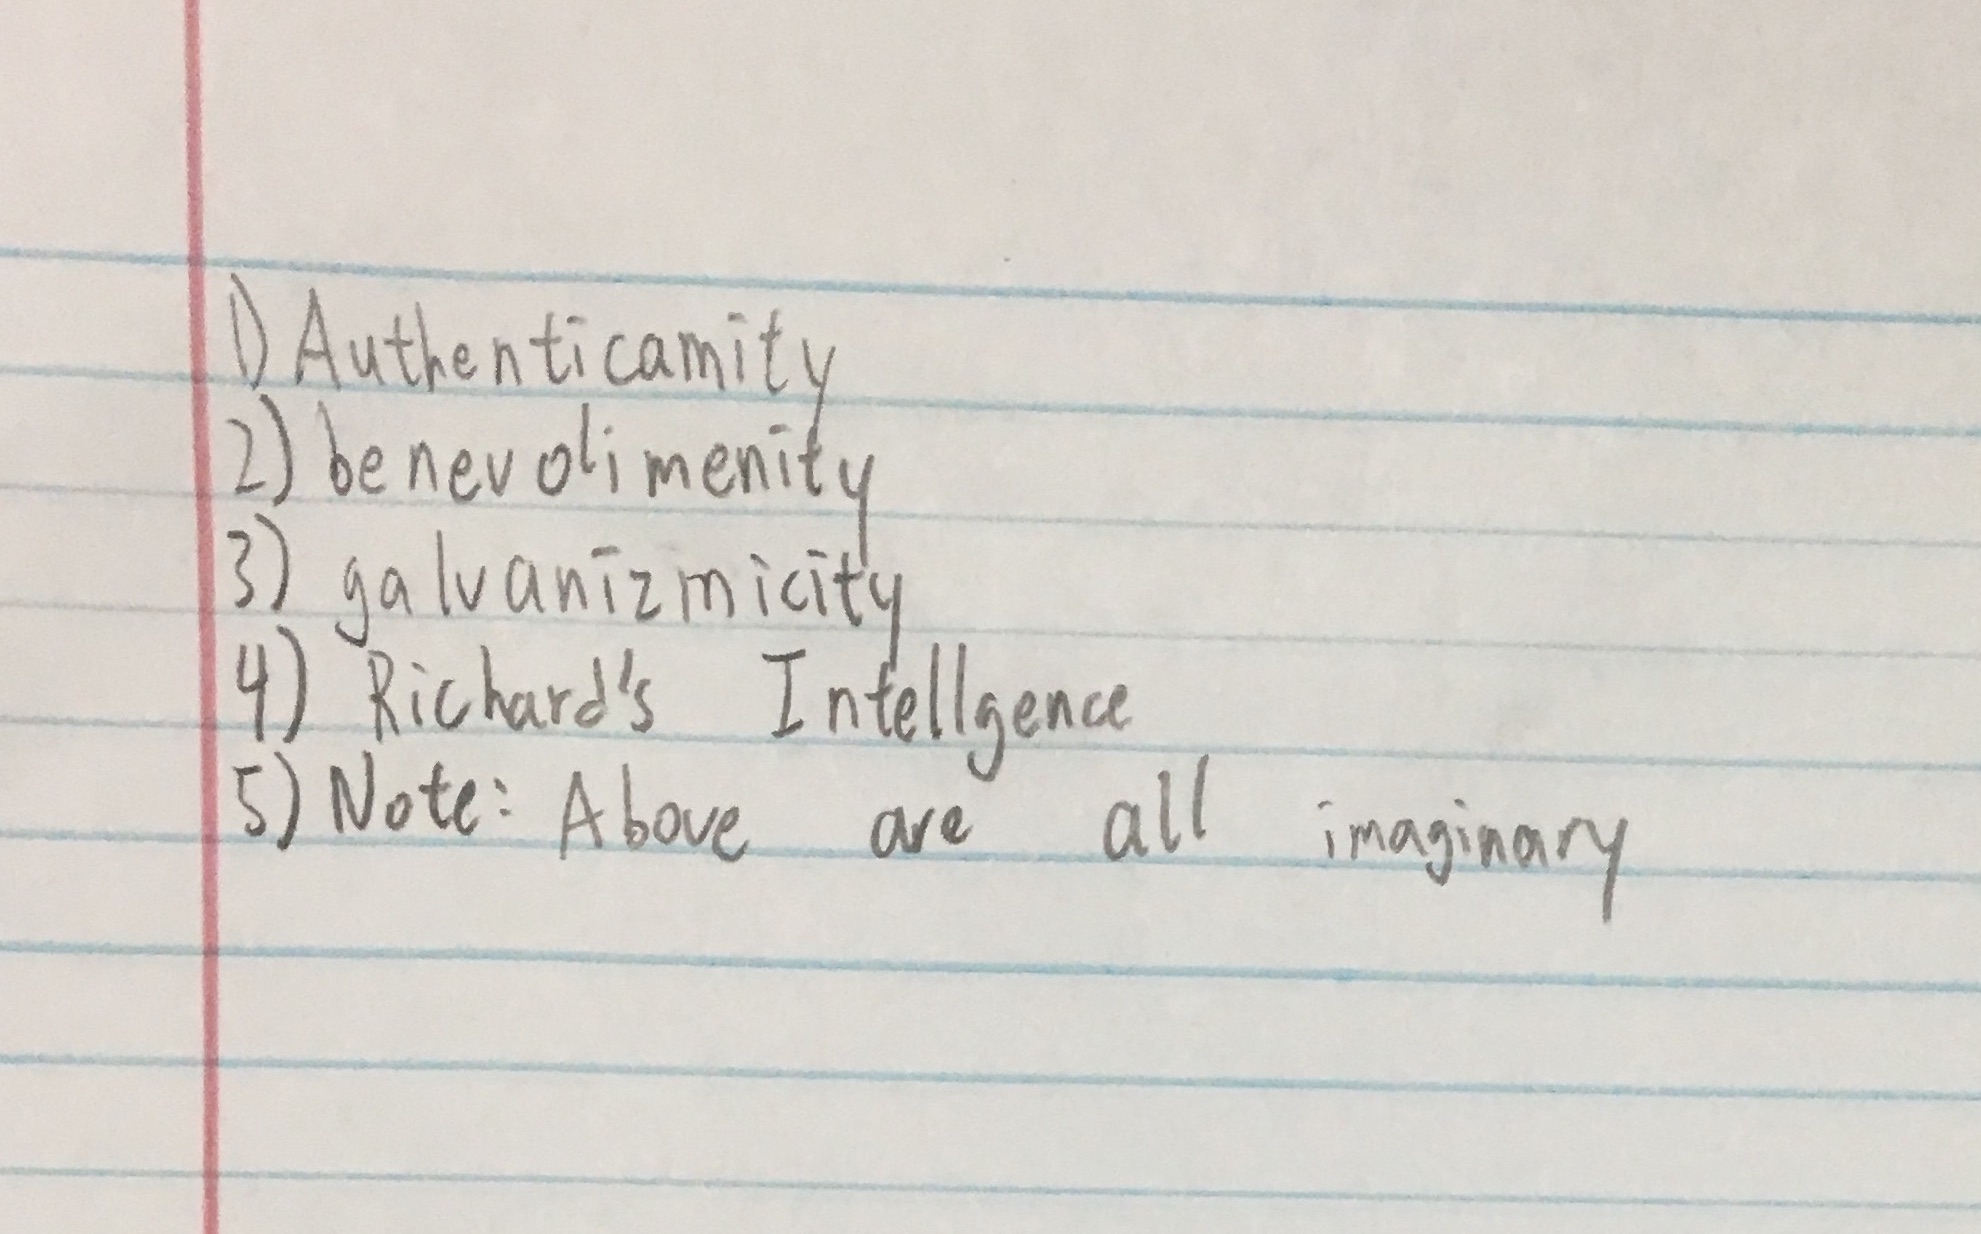 1) Authenticamity
2) benevolimenity
3) galvanizmicity
4) Richard's Intellgence
5) Note: Above are all imaginary